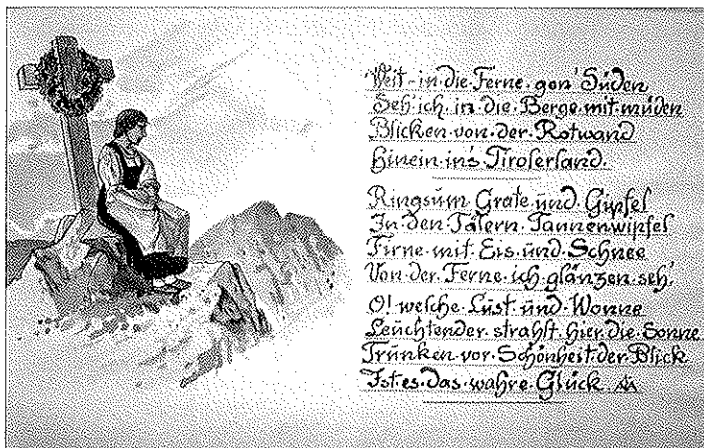 Weit-in die Ferne gen' Süden
Seh ich in die Berge mit müden
Blicken von der Rotwand
Hinein in's Tirolerland.
Ringsum Grate und Gipfel
In den Tälern Tannenwipfel
Firne mit Eis und Schnee
Von der Ferne ich glänzen seh'
O! welche Lust und Wonne
Leuchtender strahlt hier die Sonne
Trunken vor Schönheit der Blick
Ist es das wahre Glück